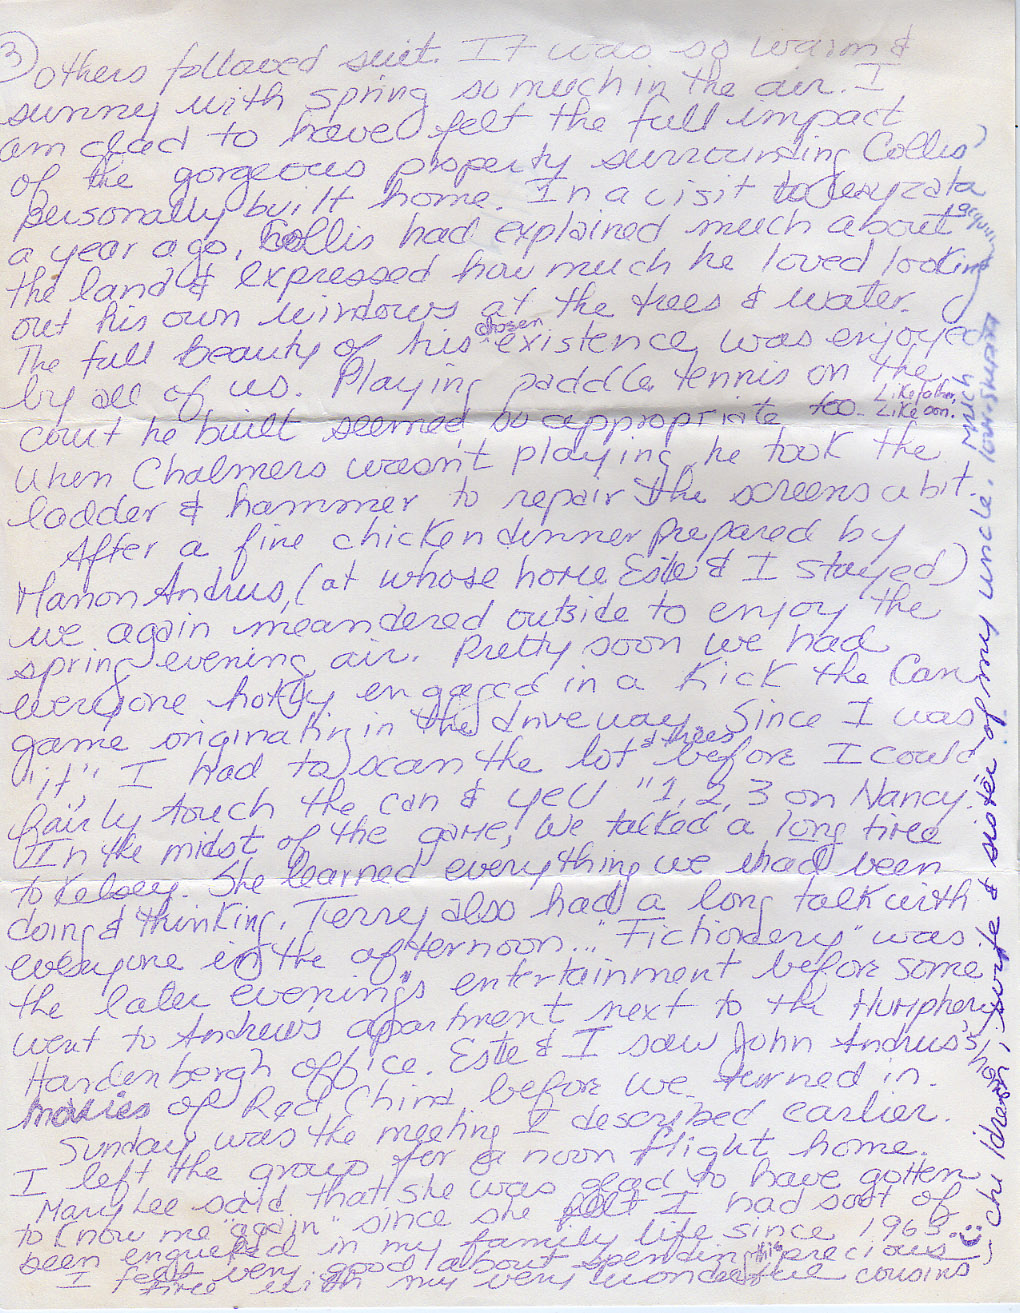 3
others followed suit. It was so warm &
sunny with spring so much in the air. I
am glad to have felt the full impact
of the gorgeous property surrounding Collis'
personally built home. In a visit to Wayzata
a year ago, Collis had explained much about
the land & expressed how much he loved looking
out his own windows at the trees & water.
The full beauty of his chosen existence was enjoyed
by all of us. Playing paddle tennis on the
court he built seemed so appropriate too. Like father, Like son.
When Chalmers wasn't playing, he took the
ladder & hammer to repair the screens a bit.
After a fine chicken dinner prepared by
Marion Andrus, (at whose home Estie & I stayed)
we again meandered outside to enjoy the
spring evening air. Pretty soon we had
everyone hotly engaged in a Kick the Can
game originating in the driveway. Since I was
"it", I had to scan the lot & trees before I could
fairly touch the can & yell "1, 2, 3 on Nancy."
In the midst of the game, we talked a long time
to Kelsey. She learned everything we had been
doing & thinking. Terry also had a long talk with
everyone in the afternoon... "Fictionary" was
the later evening's entertainment before some
went to Andrus's apartment next to the Humphrey
Hardenbergh office. Estie & I saw John Andrus's
movies of Red China before we turned in.
Sunday was the meeting I described earlier.
I left the group for a noon flight home.
Mary Lee said that she was glad to have gotten
to know me "again" since she felt I had sort of
been engulfed in my family life since 1963.
I felt very good about spending this precious
time with my very wonderful cousins
children, wife & sister of my uncle.